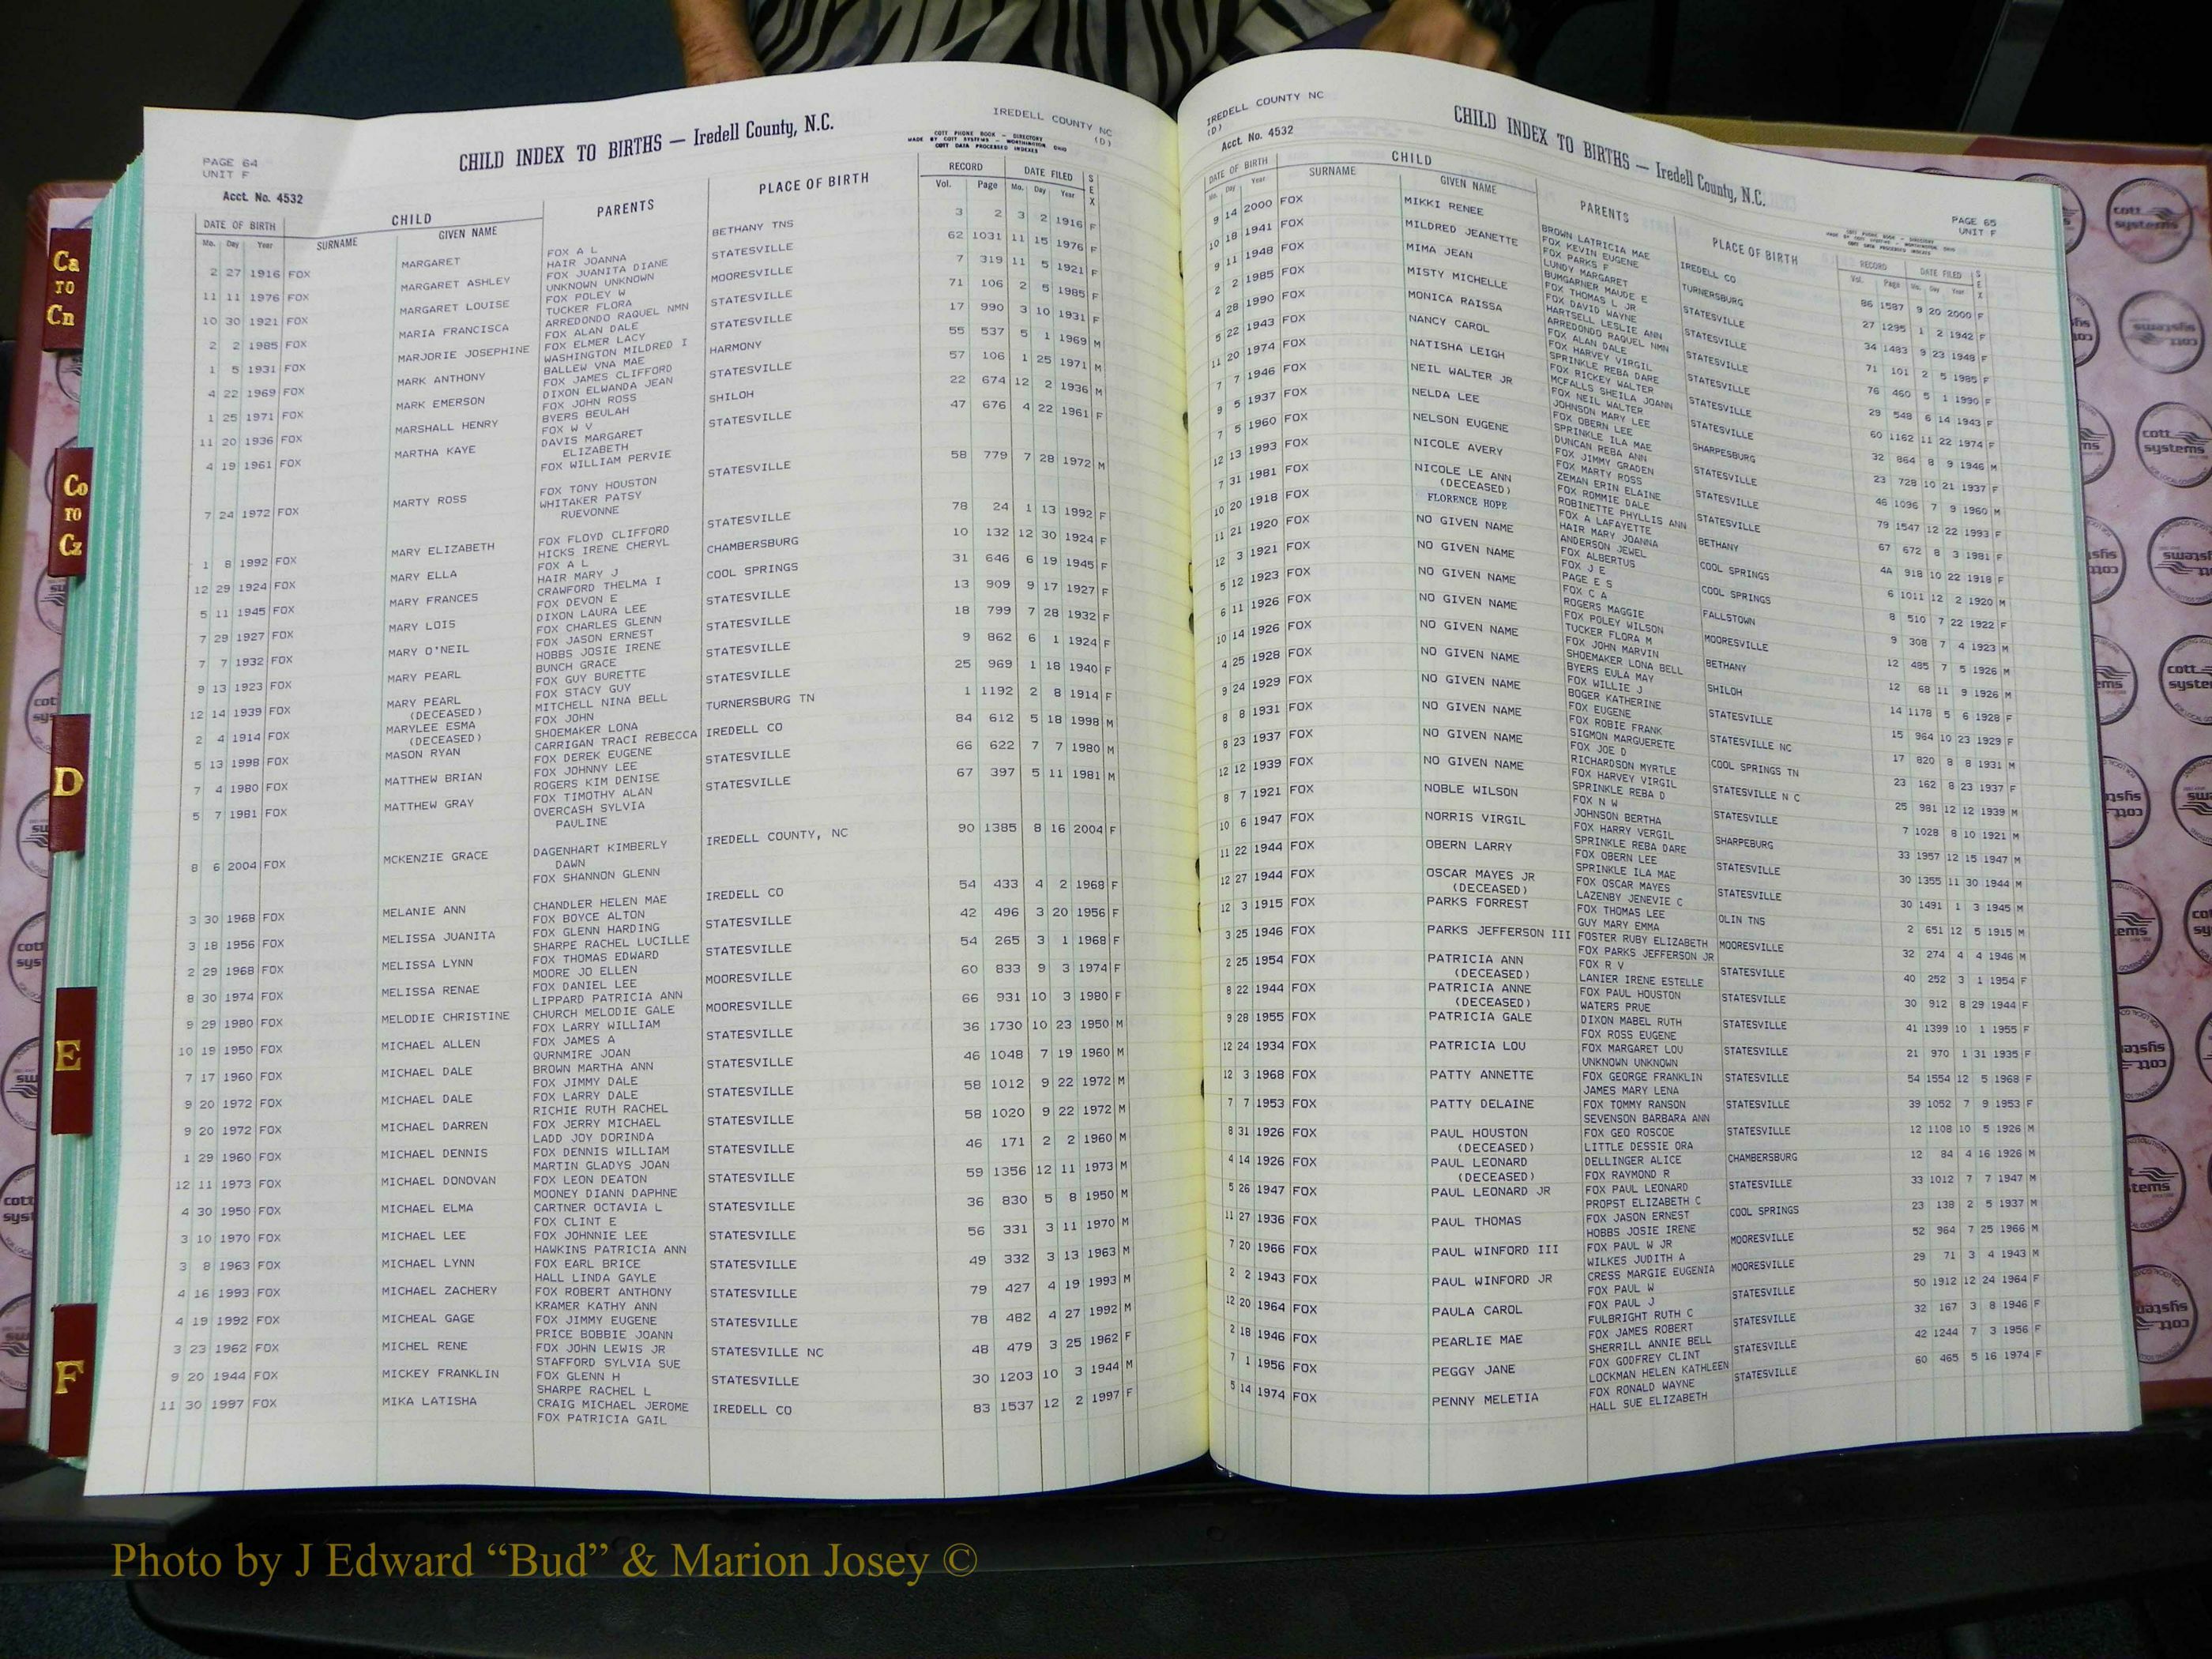 IREDELL COUNTY NC
(D)
PAGE 64
UNIT F
Acct. No. 4532
CHILD INDEX TO BIRTHS — Iredell County, N.C.
COTT PHONE BOOK - DIRECTORY
MADE BY COTT SYSTEMS - WORTHINGTON, OHIO
COTT DATA PROCESSED INDEXES
DATE OF BIRTH CHILD PARENTS PLACE OF BIRTH RECORD DATE FILED SEX
Mo. Day Year SURNAME GIVEN NAME Vol. Page Mo. Day Year
2 27 1916 FOX MARGARET FOX A L BETHANY TNS 3 2 3 2 1916 F
HAIR JOANNA
11 11 1976 FOX MARGARET ASHLEY FOX JUANITA DIANE STATESVILLE 62 1031 11 15 1976 F
UNKNOWN UNKNOWN
10 30 1921 FOX MARGARET LOUISE FOX POLEY W MOORESVILLE 7 319 11 5 1921 F
TUCKER FLORA
2 2 1985 FOX MARIA FRANCISCA ARREDONDO RAQUEL NMN STATESVILLE 71 106 2 5 1985 F
FOX ALAN DALE
1 5 1931 FOX MARJORIE JOSEPHINE FOX ELMER LACY STATESVILLE 17 990 3 10 1931 F
WASHINGTON MILDRED I
4 22 1969 FOX MARK ANTHONY BALLEW VNA MAE HARMONY 55 537 5 1 1969 M
FOX JAMES CLIFFORD
1 25 1971 FOX MARK EMERSON DIXON ELWANDA JEAN STATESVILLE 57 106 1 25 1971 M
FOX JOHN ROSS
11 20 1936 FOX MARSHALL HENRY BYERS BEULAH SHILOH 22 674 12 2 1936 M
FOX W V
4 19 1961 FOX MARTHA KAYE DAVIS MARGARET STATESVILLE 47 676 4 22 1961 F
ELIZABETH
FOX WILLIAM PERVIE
7 24 1972 FOX MARTY ROSS FOX TONY HOUSTON STATESVILLE 58 779 7 28 1972 M
WHITAKER PATSY
RUEVONNE
1 8 1992 FOX MARY ELIZABETH FOX FLOYD CLIFFORD STATESVILLE 78 24 1 13 1992 F
HICKS IRENE CHERYL
12 29 1924 FOX MARY ELLA FOX A L CHAMBERSBURG 10 132 12 30 1924 F
HAIR MARY J
5 11 1945 FOX MARY FRANCES CRAWFORD THELMA I COOL SPRINGS 31 646 6 19 1945 F
FOX DEVON E
7 29 1927 FOX MARY LOIS DIXON LAURA LEE STATESVILLE 13 909 9 17 1927 F
FOX CHARLES GLENN
7 7 1932 FOX MARY O'NEIL FOX JASON ERNEST STATESVILLE 18 799 7 28 1932 F
HOBBS JOSIE IRENE
9 13 1923 FOX MARY PEARL BUNCH GRACE STATESVILLE 9 862 6 1 1924 F
FOX GUY BURETTE
12 14 1939 FOX MARY PEARL FOX STACY GUY STATESVILLE 25 969 1 18 1940 F
(DECEASED) MITCHELL NINA BELL
2 4 1914 FOX MARYLEE ESMA FOX JOHN TURNERSBURG TN 1 1192 2 8 1914 F
(DECEASED) SHOEMAKER LONA
5 13 1998 FOX MASON RYAN CARRIGAN TRACI REBECCA IREDELL CO 84 612 5 18 1998 M
FOX DEREK EUGENE
7 4 1980 FOX MATTHEW BRIAN FOX JOHNNY LEE STATESVILLE 66 622 7 7 1980 M
ROGERS KIM DENISE
5 7 1981 FOX MATTHEW GRAY FOX TIMOTHY ALAN STATESVILLE 67 397 5 11 1981 M
OVERCASH SYLVIA
PAULINE
8 6 2004 FOX MCKENZIE GRACE DAGENHART KIMBERLY IREDELL COUNTY, NC 90 1385 8 16 2004 F
DAWN
FOX SHANNON GLENN
3 30 1968 FOX MELANIE ANN CHANDLER HELEN MAE IREDELL CO 54 433 4 2 1968 F
FOX BOYCE ALTON
3 18 1956 FOX MELISSA JUANITA FOX GLENN HARDING STATESVILLE 42 496 3 20 1956 F
SHARPE RACHEL LUCILLE
2 29 1968 FOX MELISSA LYNN FOX THOMAS EDWARD STATESVILLE 54 265 3 1 1968 F
MOORE JO ELLEN
8 30 1974 FOX MELISSA RENAE FOX DANIEL LEE MOORESVILLE 60 833 9 3 1974 F
LIPPARD PATRICIA ANN
9 29 1980 FOX MELODIE CHRISTINE CHURCH MELODIE GALE MOORESVILLE 66 931 10 3 1980 F
FOX LARRY WILLIAM
10 19 1950 FOX MICHAEL ALLEN FOX JAMES A STATESVILLE 36 1730 10 23 1950 M
QURNMIRE JOAN
7 17 1960 FOX MICHAEL DALE BROWN MARTHA ANN STATESVILLE 46 1048 7 19 1960 M
FOX JIMMY DALE
9 20 1972 FOX MICHAEL DALE FOX LARRY DALE STATESVILLE 58 1012 9 22 1972 M
RICHIE RUTH RACHEL
9 20 1972 FOX MICHAEL DARREN FOX JERRY MICHAEL STATESVILLE 58 1020 9 22 1972 M
LADD JOY DORINDA
1 29 1960 FOX MICHAEL DENNIS FOX DENNIS WILLIAM STATESVILLE 46 171 2 2 1960 M
MARTIN GLADYS JOAN
12 11 1973 FOX MICHAEL DONOVAN FOX LEON DEATON STATESVILLE 59 1356 12 11 1973 M
MOONEY DIANN DAPHNE
4 30 1950 FOX MICHAEL ELMA CARTNER OCTAVIA L STATESVILLE 36 830 5 8 1950 M
FOX CLINT E
3 10 1970 FOX MICHAEL LEE FOX JOHNNIE LEE STATESVILLE 56 331 3 11 1970 M
HAWKINS PATRICIA ANN
3 8 1963 FOX MICHAEL LYNN FOX EARL BRICE STATESVILLE 49 332 3 13 1963 M
HALL LINDA GAYLE
4 16 1993 FOX MICHAEL ZACHERY FOX ROBERT ANTHONY STATESVILLE 79 427 4 19 1993 M
KRAMER KATHY ANN
4 19 1992 FOX MICHEAL GAGE FOX JIMMY EUGENE STATESVILLE 78 482 4 27 1992 M
PRICE BOBBIE JOANN
3 23 1962 FOX MICHEL RENE FOX JOHN LEWIS JR STATESVILLE NC 48 479 3 25 1962 F
STAFFORD SYLVIA SUE
9 20 1944 FOX MICKEY FRANKLIN FOX GLENN H STATESVILLE 30 1203 10 3 1944 M
SHARPE RACHEL L
11 30 1997 FOX MIKA LATISHA CRAIG MICHAEL JEROME IREDELL CO 83 1537 12 2 1997 F
FOX PATRICIA GAIL
IREDELL COUNTY NC
(D)
Acct. No. 4532
CHILD INDEX TO BIRTHS — Iredell County, N.C.
PAGE 65
UNIT F
DATE OF BIRTH CHILD PARENTS PLACE OF BIRTH RECORD DATE FILED SEX
Mo. Day Year SURNAME GIVEN NAME Vol. Page Mo. Day Year
9 14 2000 FOX MIKKI RENEE BROWN LATRICIA MAE IREDELL CO 86 1587 9 20 2000 F
FOX KEVIN EUGENE
10 18 1941 FOX MILDRED JEANETTE FOX PARKS F TURNERSBURG 27 1295 1 2 1942 F
LUNDY MARGARET
9 11 1948 FOX MIMA JEAN BUMGARNER MAUDE E STATESVILLE 34 1483 9 23 1948 F
FOX THOMAS L JR
2 2 1985 FOX MISTY MICHELLE FOX DAVID WAYNE STATESVILLE 71 101 2 5 1985 F
HARTSELL LESLIE ANN
4 28 1990 FOX MONICA RAISSA ARREDONDO RAQUEL NMN STATESVILLE 76 460 5 1 1990 F
FOX ALAN DALE
5 22 1943 FOX NANCY CAROL FOX HARVEY VIRGIL STATESVILLE 29 548 6 14 1943 F
SPRINKLE REBA DARE
11 20 1974 FOX NATISHA LEIGH FOX RICKEY WALTER STATESVILLE 60 1162 11 22 1974 F
MCFALLS SHEILA JOANN
7 7 1946 FOX NEIL WALTER JR FOX NEIL WALTER SHARPESBURG 32 864 8 9 1946 M
JOHNSON MARY LEE
9 5 1937 FOX NELDA LEE FOX OBERN LEE STATESVILLE 23 728 10 21 1937 F
SPRINKLE ILA MAE
7 5 1960 FOX NELSON EUGENE DUNCAN REBA ANN STATESVILLE 46 1096 7 9 1960 M
FOX JIMMY GRADEN
12 13 1993 FOX NICOLE AVERY FOX MARTY ROSS STATESVILLE 79 1547 12 22 1993 F
ZEMAN ERIN ELAINE
7 31 1981 FOX NICOLE LE ANN FOX ROMMIE DALE BETHANY 67 672 8 3 1981 F
(DECEASED) ROBINETTE PHYLLIS ANN
10 20 1918 FOX FLORENCE HOPE FOX A LAFAYETTE COOL SPRINGS 4A 918 10 22 1918 F
HAIR MARY JOANNA
11 21 1920 FOX NO GIVEN NAME ANDERSON JEWEL COOL SPRINGS 6 1011 12 2 1920 M
FOX ALBERTUS
12 3 1921 FOX NO GIVEN NAME FOX J E FALLSTOWN 8 510 7 22 1922 F
PAGE E S
5 12 1923 FOX NO GIVEN NAME FOX C A MOORESVILLE 9 308 7 4 1923 M
ROGERS MAGGIE
6 11 1926 FOX NO GIVEN NAME FOX POLEY WILSON BETHANY 12 485 7 5 1926 M
TUCKER FLORA M
10 14 1926 FOX NO GIVEN NAME FOX JOHN MARVIN SHILOH 12 68 11 9 1926 M
SHOEMAKER LONA BELL
4 25 1928 FOX NO GIVEN NAME BYERS EULA MAY STATESVILLE 14 1178 5 6 1928 F
FOX WILLIE J
9 24 1929 FOX NO GIVEN NAME BOGER KATHERINE STATESVILLE NC 15 964 10 23 1929 F
FOX EUGENE
8 8 1931 FOX NO GIVEN NAME FOX ROBIE FRANK COOL SPRINGS TN 17 820 8 8 1931 M
SIGMON MARGUERETE
8 23 1937 FOX NO GIVEN NAME FOX JOE D STATESVILLE N C 23 162 8 23 1937 F
RICHARDSON MYRTLE
12 12 1939 FOX NO GIVEN NAME FOX HARVEY VIRGIL STATESVILLE 25 981 12 12 1939 M
SPRINKLE REBA D
8 7 1921 FOX NOBLE WILSON FOX N W SHARPEBURG 7 1028 8 10 1921 M
JOHNSON BERTHA
10 6 1947 FOX NORRIS VIRGIL FOX HARRY VERGIL STATESVILLE 33 1957 12 15 1947 M
SPRINKLE REBA DARE
11 22 1944 FOX OBERN LARRY FOX OBERN LEE STATESVILLE 30 1355 11 30 1944 M
SPRINKLE ILA MAE
12 27 1944 FOX OSCAR MAYES JR FOX OSCAR MAYES 30 1491 1 3 1945 M
(DECEASED) LAZENBY JENEVIE C
12 3 1915 FOX PARKS FORREST FOX THOMAS LEE OLIN TNS 2 651 12 5 1915 M
GUY MARY EMMA
3 25 1946 FOX PARKS JEFFERSON III FOSTER RUBY ELIZABETH MOORESVILLE 32 274 4 4 1946 M
FOX PARKS JEFFERSON JR
2 25 1954 FOX PATRICIA ANN FOX R V STATESVILLE 40 252 3 1 1954 F
(DECEASED) LANIER IRENE ESTELLE
8 22 1944 FOX PATRICIA ANNE FOX PAUL HOUSTON STATESVILLE 30 912 8 29 1944 F
(DECEASED) WATERS PRUE
9 28 1955 FOX PATRICIA GALE DIXON MABEL RUTH STATESVILLE 41 1399 10 1 1955 F
FOX ROSS EUGENE
12 24 1934 FOX PATRICIA LOU FOX MARGARET LOU STATESVILLE 21 970 1 31 1935 F
UNKNOWN UNKNOWN
12 3 1968 FOX PATTY ANNETTE FOX GEORGE FRANKLIN STATESVILLE 54 1554 12 5 1968 F
JAMES MARY LENA
7 7 1953 FOX PATTY DELAINE FOX TOMMY RANSON STATESVILLE 39 1052 7 9 1953 F
SEVENSON BARBARA ANN
8 31 1926 FOX PAUL HOUSTON FOX GEO ROSCOE STATESVILLE 12 1108 10 5 1926 M
(DECEASED) LITTLE DESSIE ORA
4 14 1926 FOX PAUL LEONARD DELLINGER ALICE CHAMBERSBURG 12 84 4 16 1926 M
(DECEASED) FOX RAYMOND R
5 26 1947 FOX PAUL LEONARD JR FOX PAUL LEONARD STATESVILLE 33 1012 7 7 1947 M
PROPST ELIZABETH C
11 27 1936 FOX PAUL THOMAS FOX JASON ERNEST COOL SPRINGS 23 138 2 5 1937 M
HOBBS JOSIE IRENE
7 20 1966 FOX PAUL WINFORD III FOX PAUL W JR MOORESVILLE 52 964 7 25 1966 M
WILKES JUDITH A
2 2 1943 FOX PAUL WINFORD JR CRESS MARGIE EUGENIA MOORESVILLE 29 71 3 4 1943 M
FOX PAUL W
12 20 1964 FOX PAULA CAROL FOX PAUL J STATESVILLE 50 1912 12 24 1964 F
FULBRIGHT RUTH C
2 18 1946 FOX PEARLIE MAE FOX JAMES ROBERT STATESVILLE 32 167 3 8 1946 F
SHERRILL ANNIE BELL
7 1 1956 FOX PEGGY JANE FOX GODFREY CLINT STATESVILLE 42 1244 7 3 1956 F
LOCKMAN HELEN KATHLEEN
5 14 1974 FOX PENNY MELETIA FOX RONALD WAYNE STATESVILLE 60 465 5 16 1974 F
HALL SUE ELIZABETH
Ca
TO
Cn
Co
TO
Cz
D
E
F
cott
systems
Photo by J Edward “Bud” & Marion Josey ©